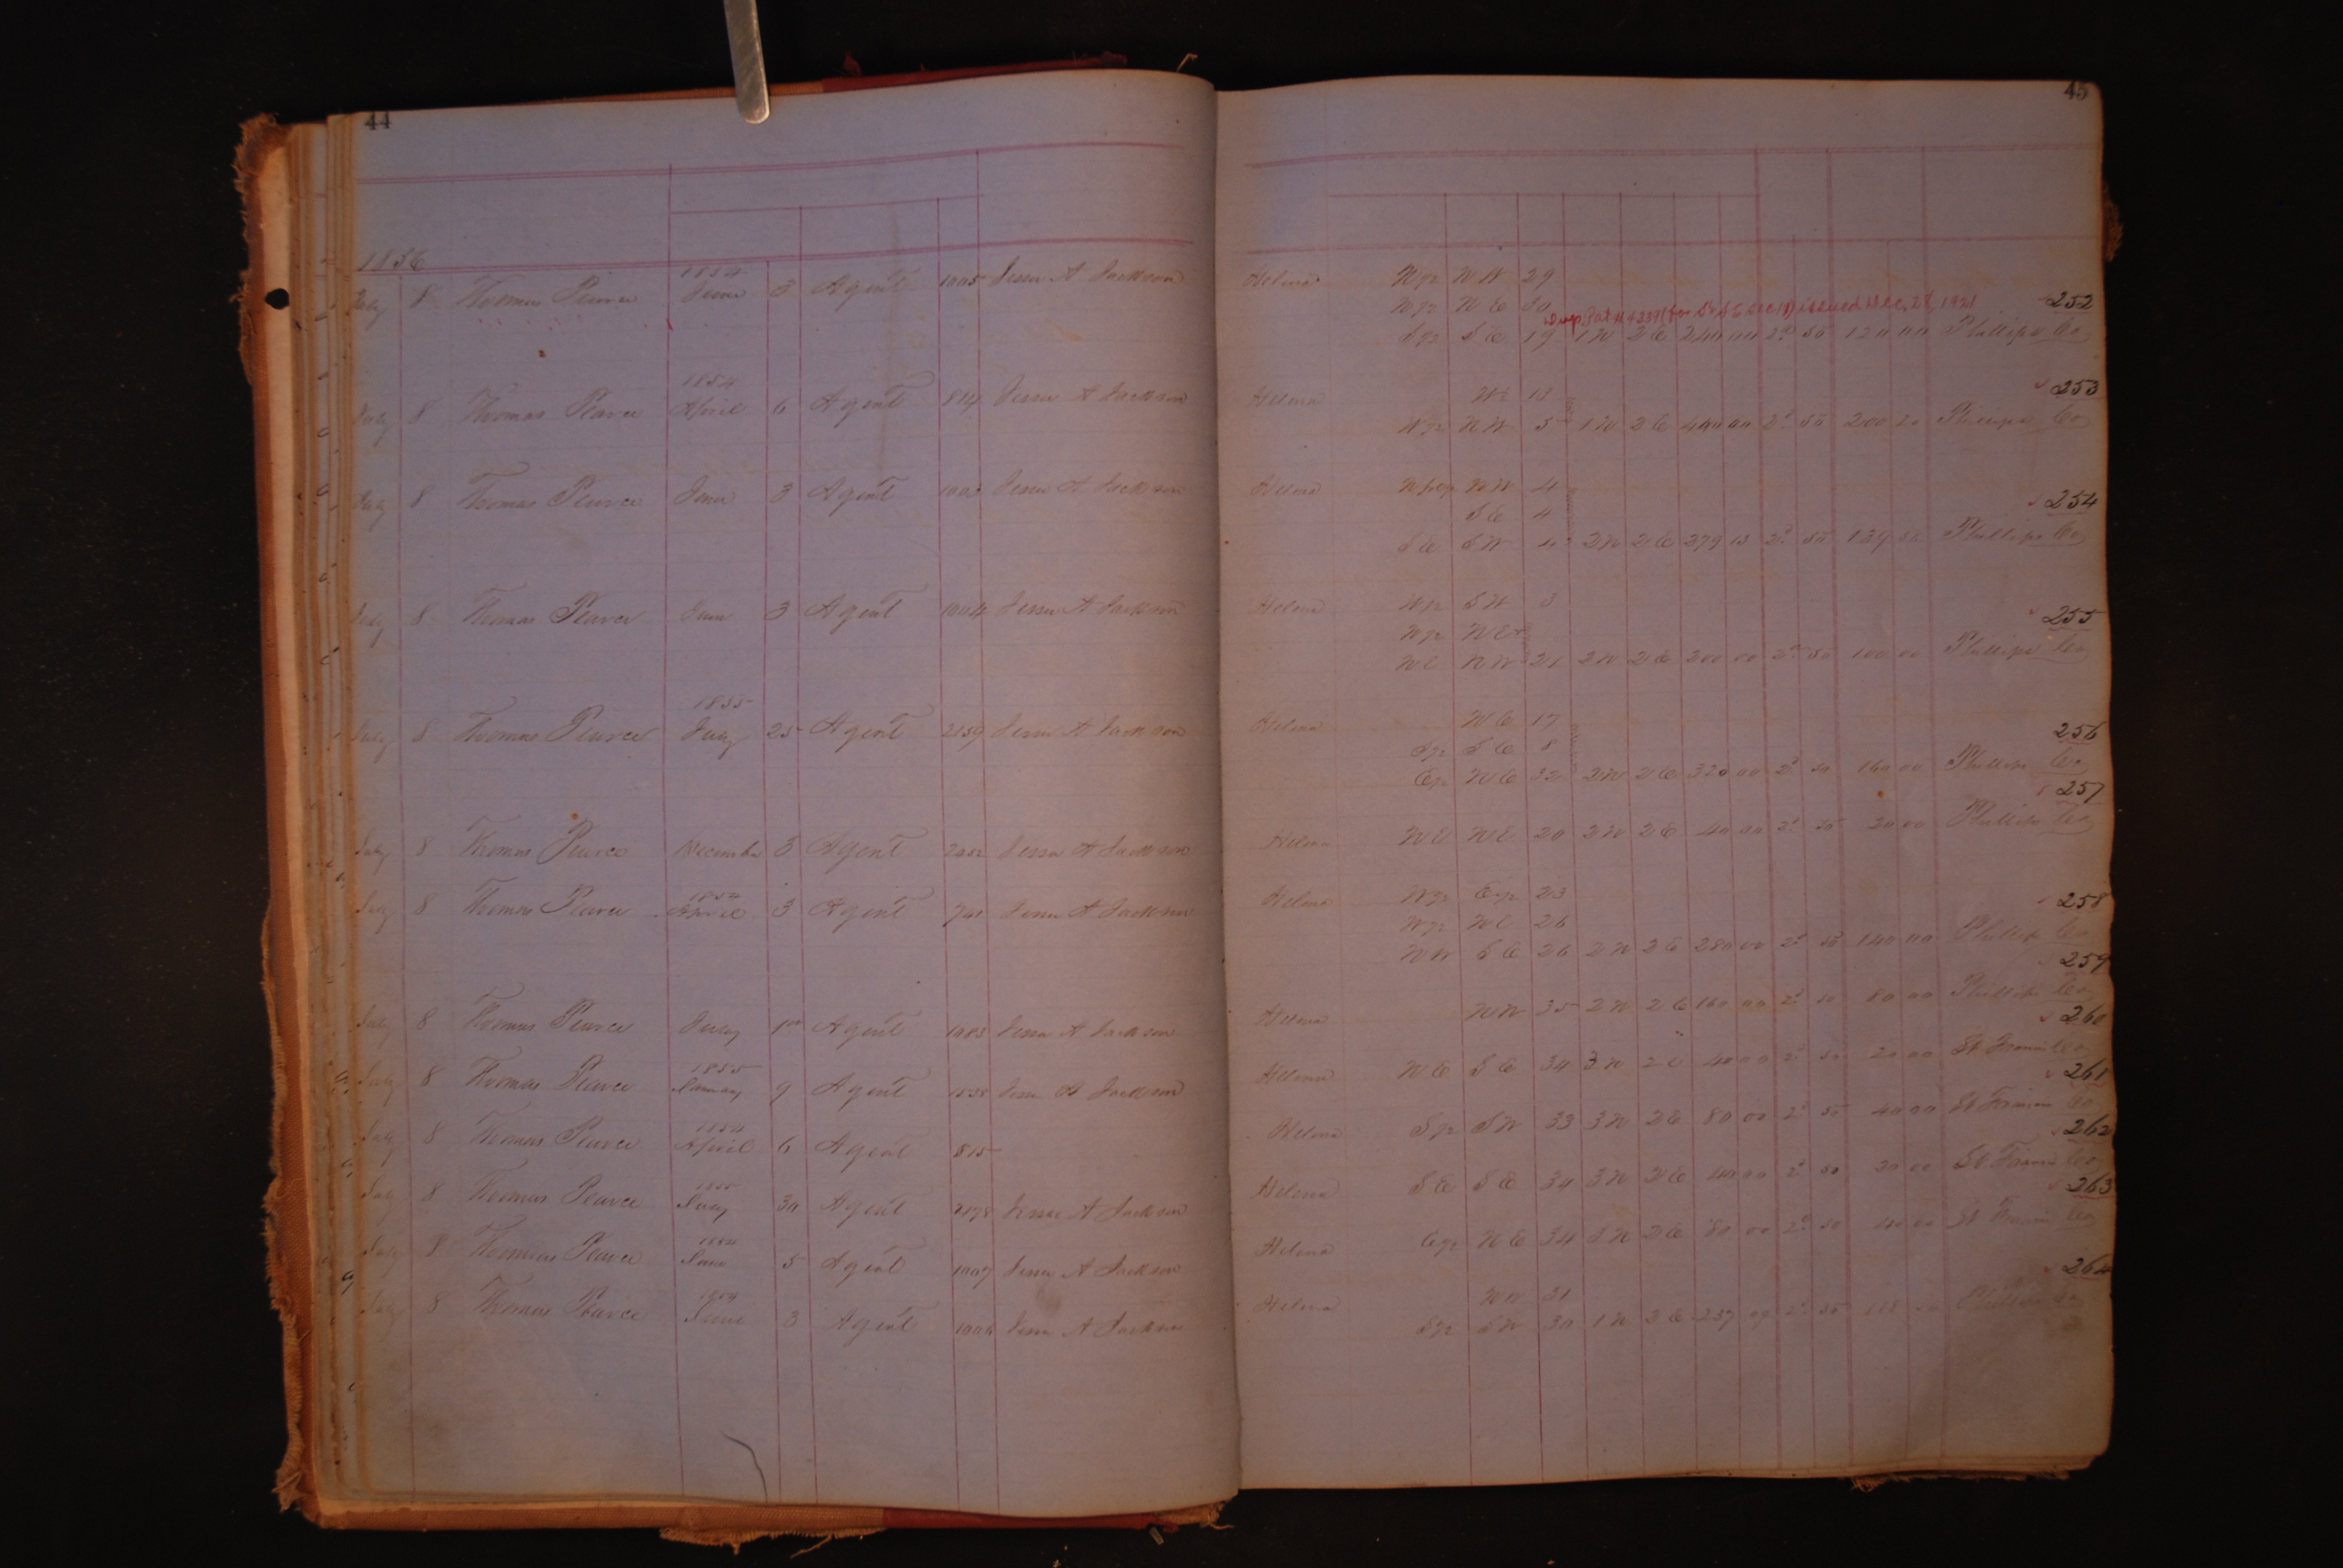 44
45
1836
July 8 Thomas Pearce 1854 June 3 Agent 1005 Jesse A Jackson Helena W½ NW 29
W½ NE 30 252
Dup. Pat # 4239 (for S½ SE Sec 19) issued Dec. 28, 1921
S½ SE 19 1N 2E 240 00 50 120 00 Phillips Co
July 8 Thomas Pearce 1854 April 6 Agent 814 Jesse A Jackson Helena 253
W½ NW 5 1N 2E 50 200 Phillips Co
July 8 Thomas Pearce June 3 Agent Jesse A Jackson Helena NW 4 254
SE 4
SE SW 4 2N 2E 279 13 50 139 56 Phillips Co
July 8 Thomas Pearce June 3 Agent 1004 Jesse A Jackson Helena W½ SW 3 255
W½ NE
NE NW 21 2N 2E 200 00 50 100 00 Phillips Co
July 8 Thomas Pearce 1855 July 25 Agent 2159 Jesse A Jackson Helena NE 17 256
S½ SE 8
E½ NE 32 2N 2E 320 00 50 160 00 Phillips Co
July 8 Thomas Pearce December 3 Agent 2452 Jesse A Jackson Helena NE NE 20 2N 2E 40 00 50 20 00 Phillips Co 257
July 8 Thomas Pearce 1854 April 3 Agent 741 Jesse A Jackson Helena W½ E½ 23 258
W½ NE 26
NW SE 26 2N 2E 280 00 50 140 00 Phillips Co
July 8 Thomas Pearce July 1st Agent 1083 Jesse A Jackson Helena NW 35 2N 2E 160 00 50 80 00 Phillips Co 259
July 8 Thomas Pearce 1855 January 9 Agent 1538 Jesse A Jackson Helena NE SE 34 3N 2E 40 00 50 20 00 St Francis Co 260
July 8 Thomas Pearce 1854 April 6 Agent 815 Helena S½ SW 33 3N 2E 80 00 50 40 00 St Francis Co 261
July 8 Thomas Pearce 1855 July 30 Agent 2178 Jesse A Jackson Helena SE SE 34 3N 2E 40 00 50 20 00 St Francis Co 262
July 8 Thomas Pearce 1854 June 5 Agent 1007 Jesse A Jackson Helena E½ NE 34 3N 2E 80 00 50 40 00 St Francis Co 263
July 8 Thomas Pearce 1854 June 3 Agent 1006 Jesse A Jackson Helena NW 31 264
S½ SW 30 1N 2E 50 Phillips Co